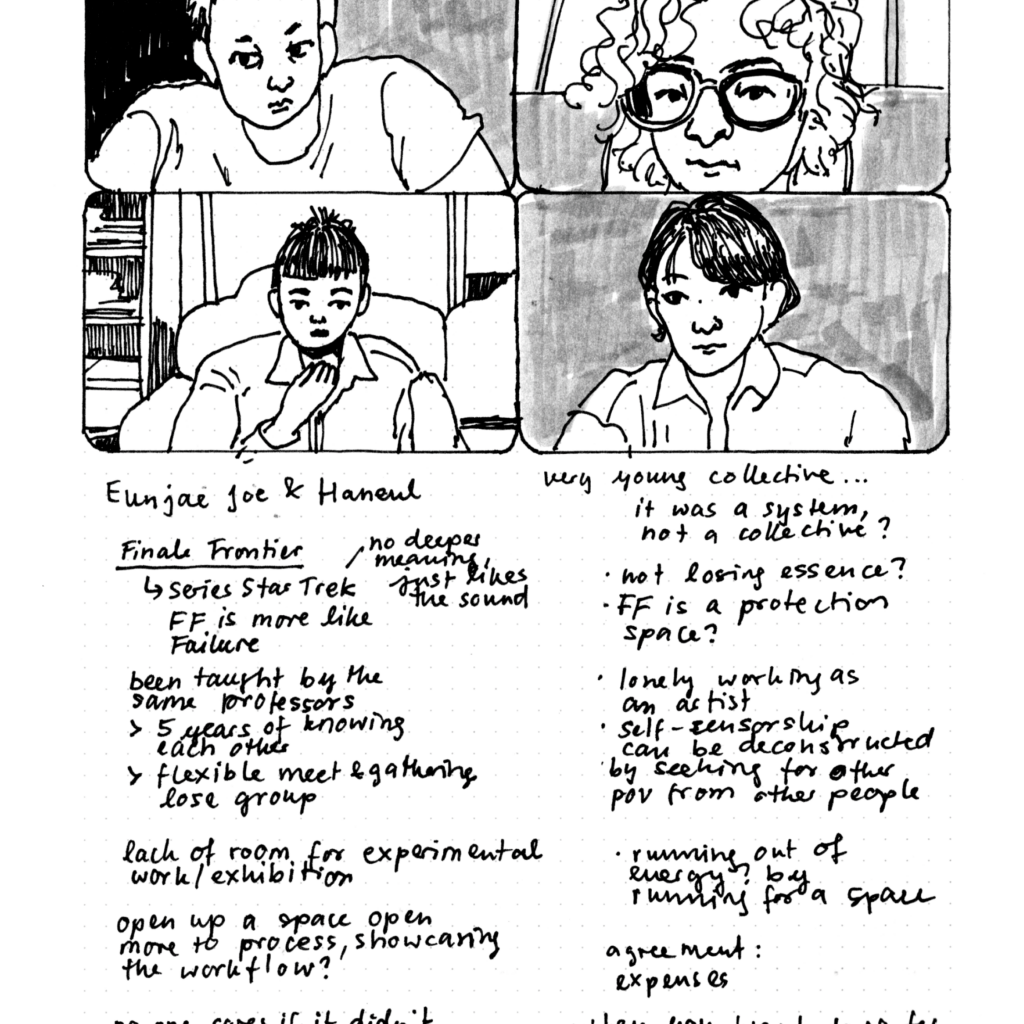 Eunjae Joe & Haneul
Finale Frontier
no deeper
meaning,
just likes
the sound
↳ Series Star Trek
FF is more like
Failure
been taught by the
same professors
> 5 years of knowing
each other
> flexible meet & gathering
lose group
lack of room for experimental
work/exhibition
open up a space open
more to process, showcasing
the workflow?
no one cares if it didn't
very young collective...
it was a system,
not a collective?
· not losing essence?
· FF is a protection
space?
· lonely working as
an artist
· self-sensorship
can be deconstructed
by seeking for other
pov from other people
· running out of
energy? by
running for a space
agreement:
expenses